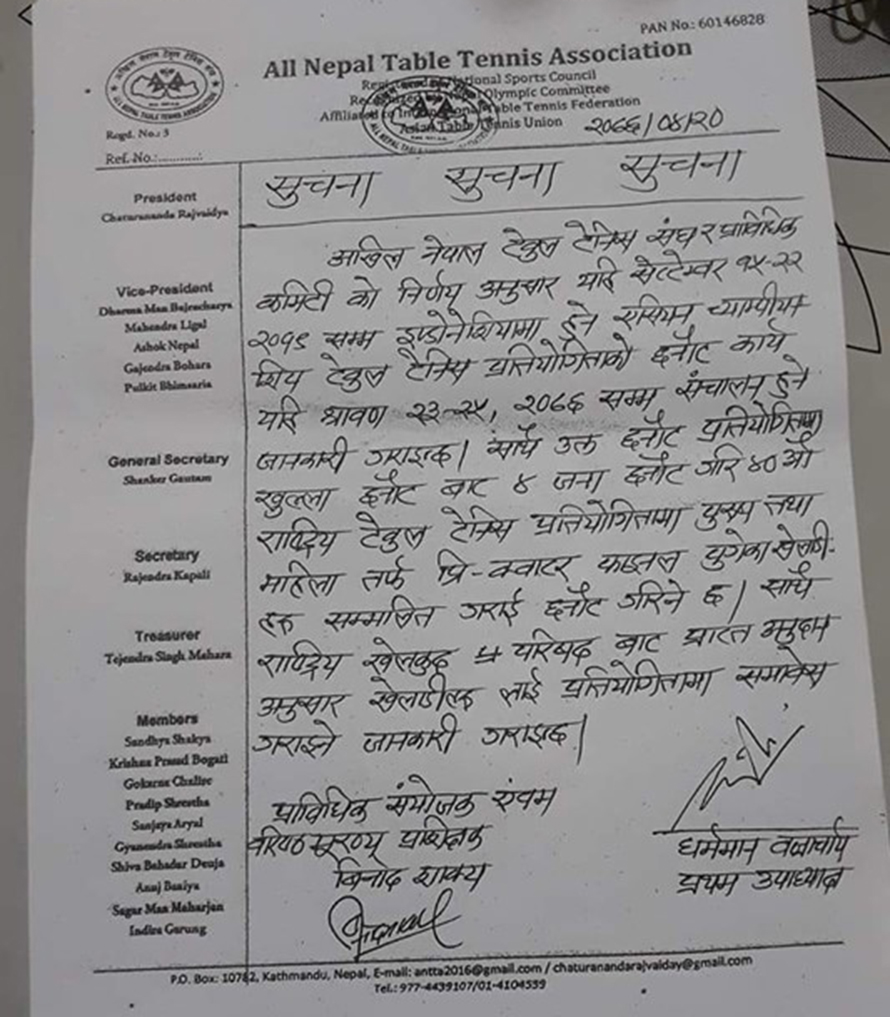 PAN No.: 60146828
All Nepal Table Tennis Association
Registered National Sports Council
Olympic Committee
Affiliated to International Table Tennis Federation
Asian Table Tennis Union
ALL NEPAL TABLE TENNIS ASSOCIATION
Regd. No.: 3
Ref. No.:............:
२०७६/०४/२०
सुचना सुचना सुचना
President
Chaturananda Rajvaidya
Vice-President
Dharma Man Bajracharya
Mahendra Ligal
Ashok Nepal
Gajendra Bohara
Pulkit Bhimsaria
General Secretary
Shanker Gautam
Secretary
Rajendra Kapali
Treasurer
Tejendra Singh Mahara
Members
Sandhya Shakya
Krishna Prasad Bogati
Gokarna Chalise
Pradip Shrestha
Sanjaya Aryal
Gyanendra Shrestha
Shiva Bahadur Deuja
Anuj Baniya
Sagar Man Maharjan
Indira Gurung
अखिल नेपाल टेबुल टेनिस संघ र प्राविधिक
कमिटी को निर्णय अनुसार यहि सेप्टेम्वर १५-२२
२०१९ सम्म इण्डोनेशियामा हुने एसियन च्याम्पीयन
शिप टेबुल टेनिस प्रतियोगिताको छनौट कार्य
यहि श्रावण २३-२५, २०७६ सम्म संचालन हुने
जानकारी गराइन्छ। साथै उक्त छनौट प्रतियोगितामा
खुल्ला छनौट बाट ४ जना छनौट गरि ४० औं
राष्ट्रिय टेबुल टेनिस प्रतियोगितामा पुरुष तथा
महिला तर्फ प्रि-क्वाटर फाइनल पुगेका खेलाडी-
हरु सम्मालित गराई छनौट गरिने छ। साथै
राष्ट्रिय खेलकुद परिषद बाट प्राप्त
अनुसार खेलाडीहरु लाई प्रतियोगितामा समावेस
गराइने जानकारी गराइन्छ।
प्राविधिक संयोजक एंवम
प्रशिक्षक
बिनोद शाक्य
धर्ममान वज्राचार्य
प्रथम उपाध्यक्ष
P.O. Box: 10782, Kathmandu, Nepal, E-mail: antta2016@gmail.com / chaturanandarajvaiday@gmail.com
Tel.: 977-4439107/01-4104559